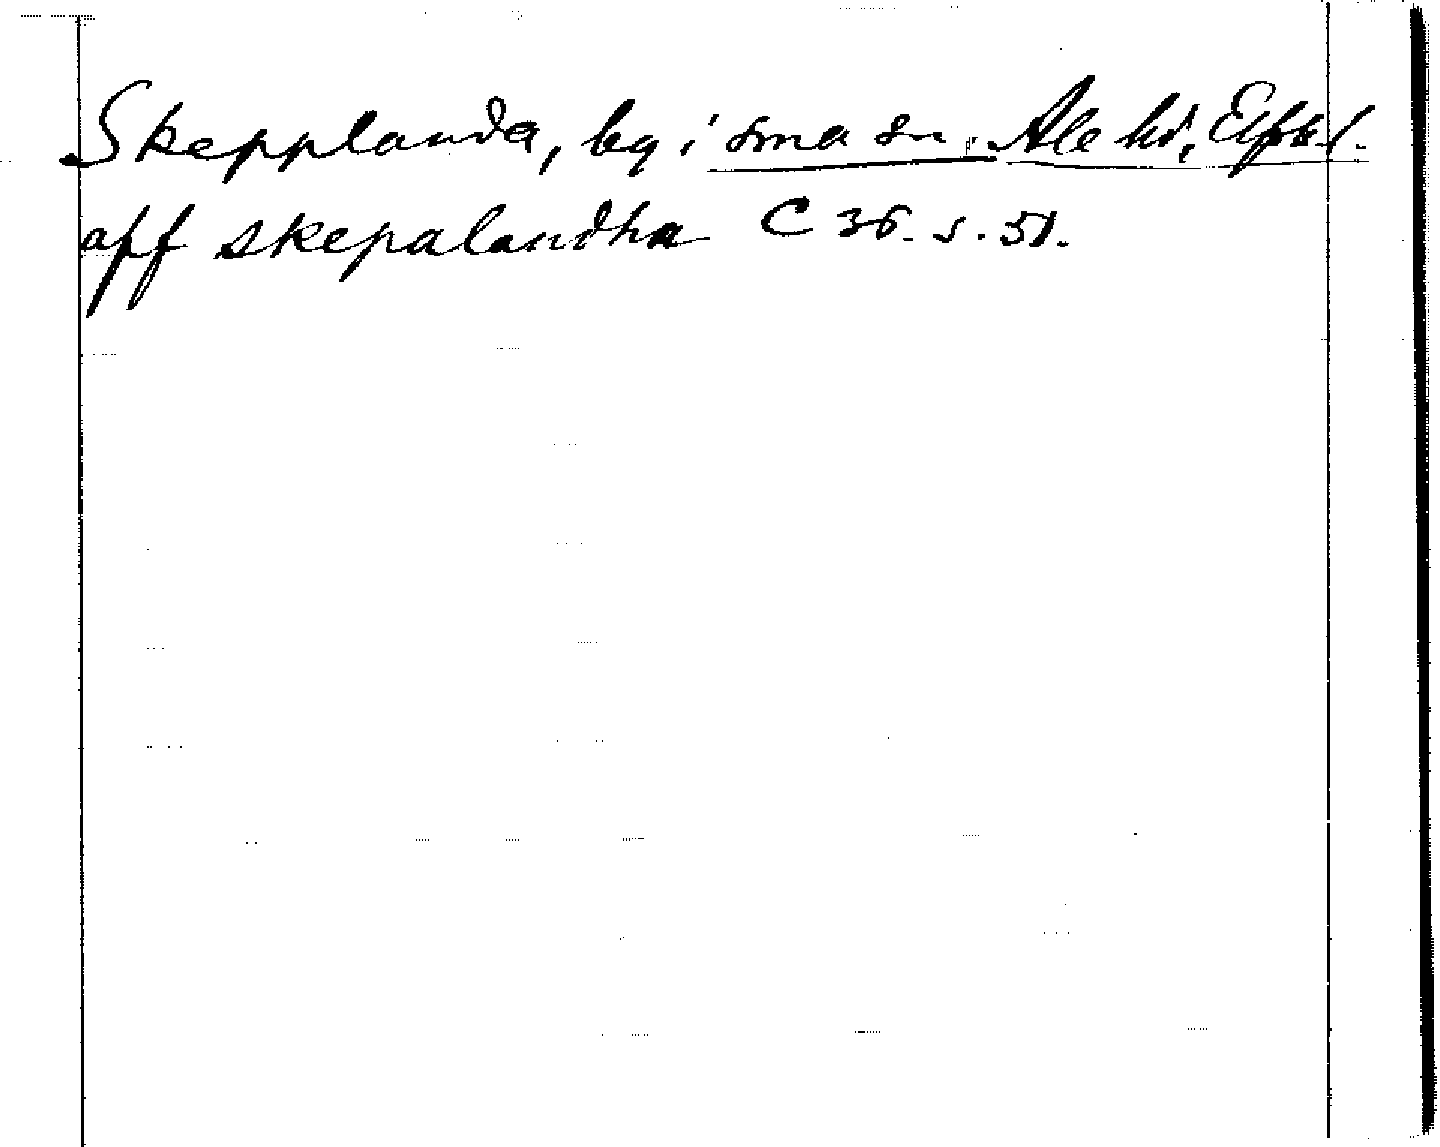 Skepplanda, by i sma sn, Ale hd, Elfsb.l.
aff skepalandha C 36. s. 51.